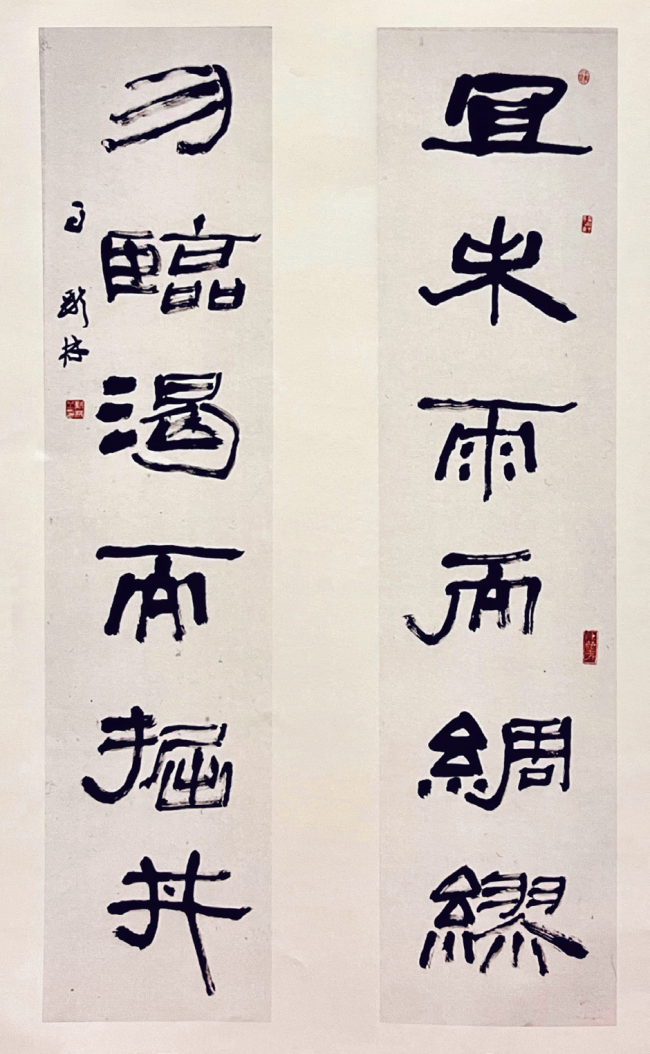 宜未雨而綢繆
勿臨渴而掘井